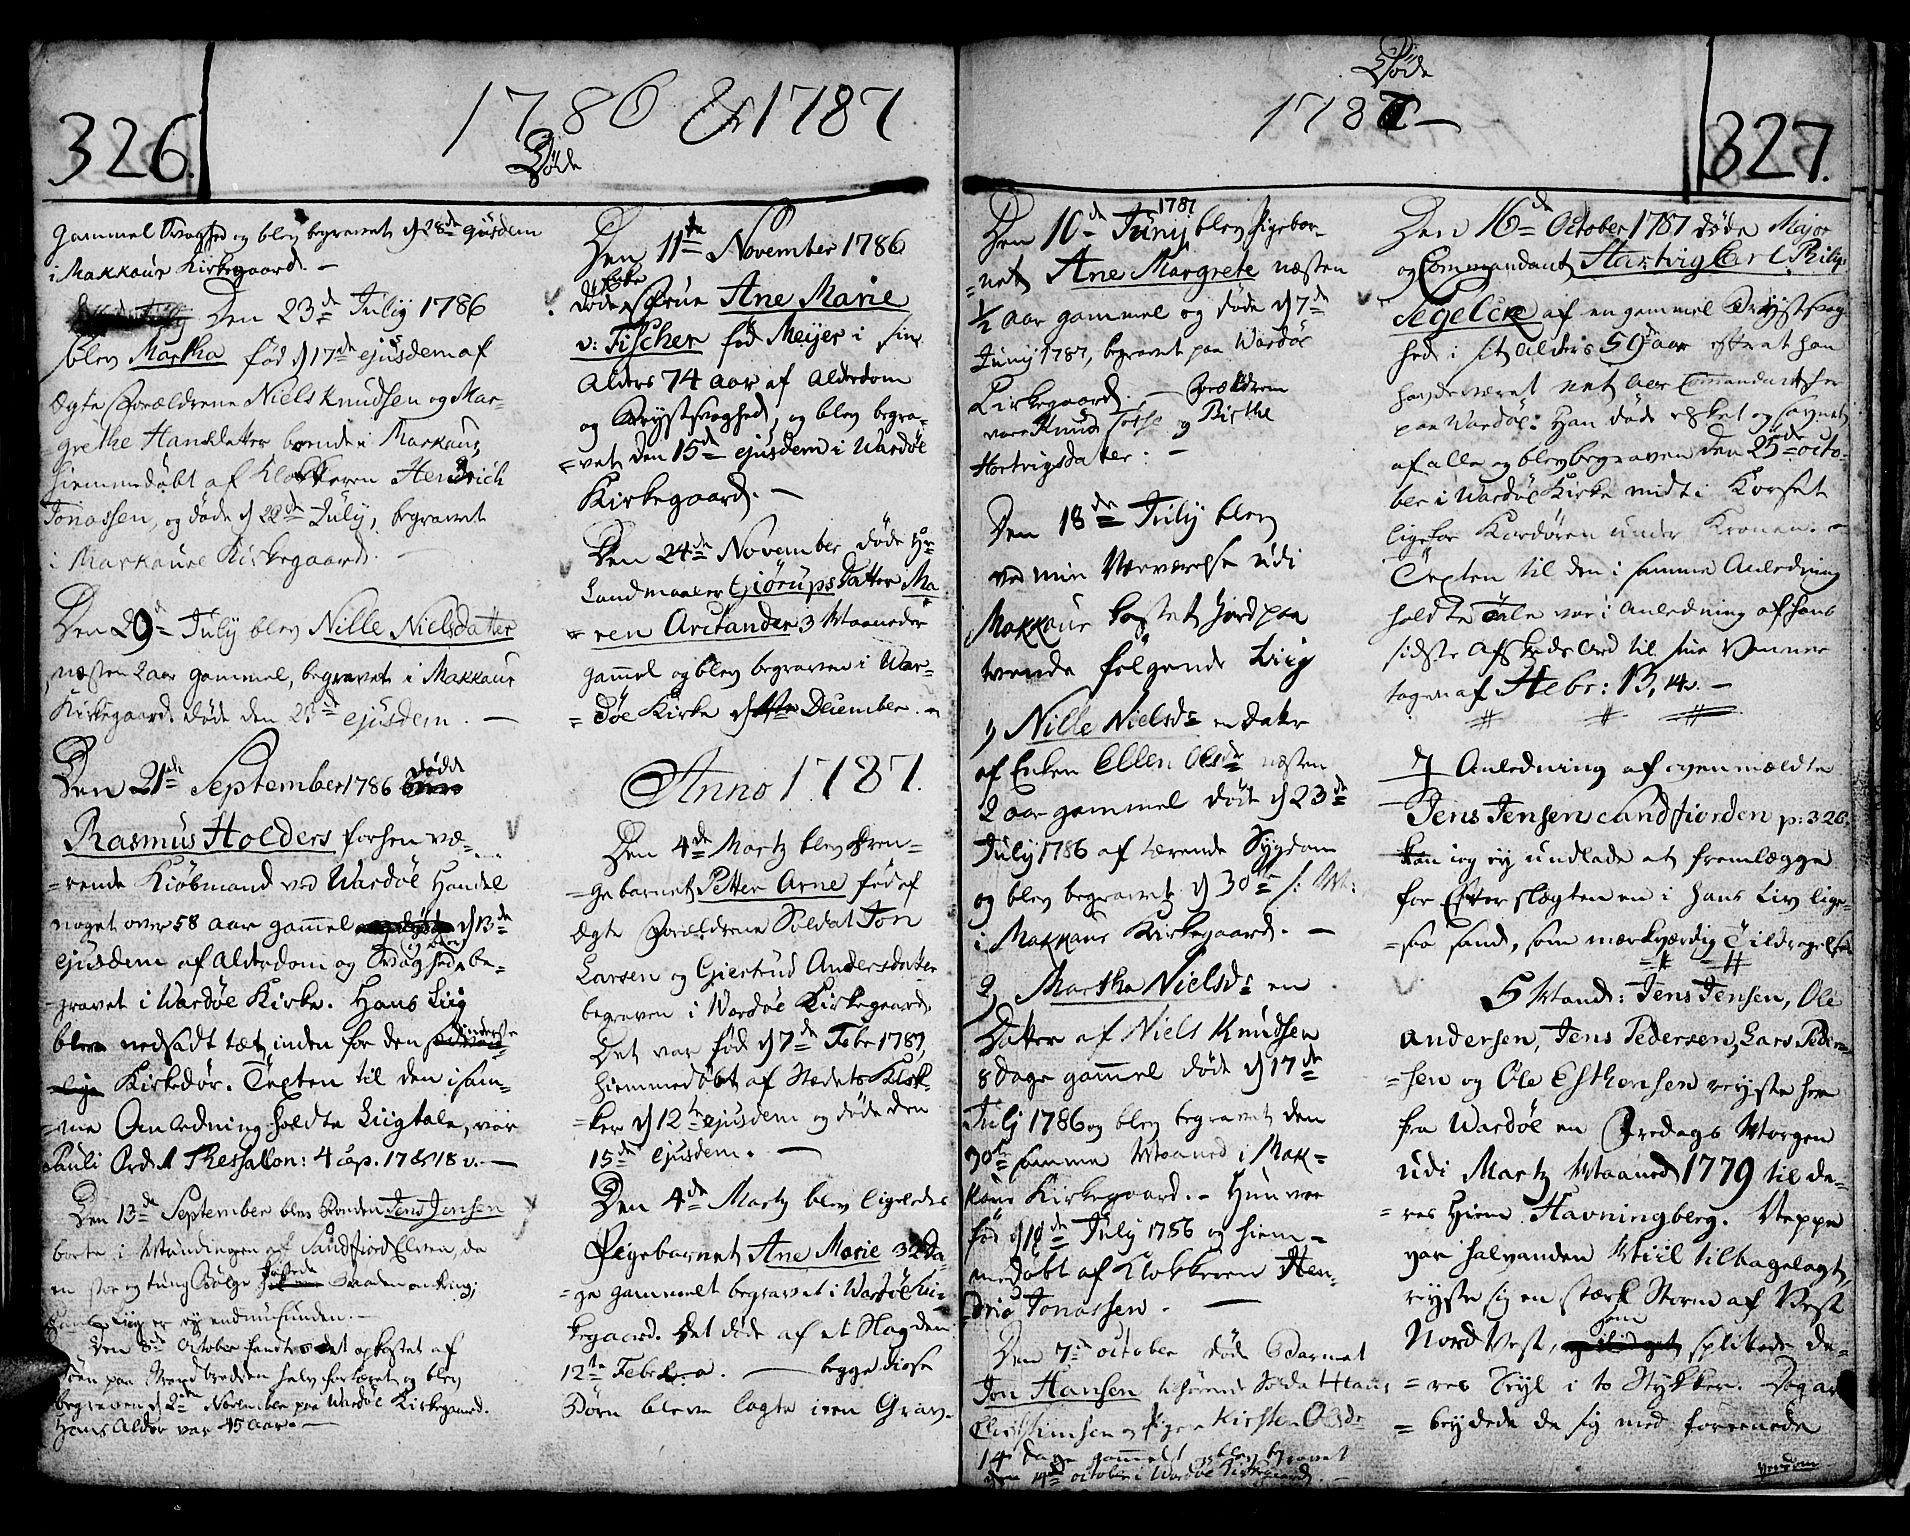 326.
1786 & 1787
Døde
gammel Svaghed og blev begravet d 28de ejusdem
i Makkaur Kirkegaard. —
Den 23de Julij 1786
blev Martha fød d 17de ejusdem af
Ægte Forældrene Niels Knudsen og Mar-
grethe Hansdatter boende i Makkaur,
hiemmedøbt af Klokkeren Hendrich
Jonassen, og døde d 22de July, begravet
i Makkaure Kirkegaard. —
Den 29de July blev Nille Nielsdatter
næsten 2 aar gammel, begravet i Makkaur
Kirkegaard. døde den 23de ejusdem. —
Den 21de September 1786 døde
Rasmus Holders forhen væ-
=rende Kiøbmand ved Wardøe Handel
noget over 58 aar gammel d 13de
ejusdem af Alderdom og Svaghed, og blev be-
gravet i Wardøe Kirke. Hans Liig
blev nedsadt tæt inden for den inderste
Kirkedør. Texten til den i sam-
me Anledning holdte Liigtale, var
Pauli Ord 1 Thessallon: 4 cap. 17 & 18 v. —
Den 13de September blev Bonden Jens Jensen
borte i Mundingen af Sandfiord Elven, da
en stor og tung Bølge kastede Baaden omkring;
hans Liig er ej endnu funden. —
Den 8de October fandtes det opkastet af
Søen paa Strandbredden halv fortæret og blev
begraven d 2de November paa Wardøe Kirkegaard.
Hans Alder var 45 aar. —
Den 11te November 1786
døde Frue Ane Marie
v: Fischer fød Meijer i sin
Alders 74 aar af Alderdom
og Brystsvaghed, og blev begra-
=vet den 15de ejusdem i Wardøe
Kirkegaard. —
Den 24de November døde Hr
Landmaaler Giørups Datter Ma
=ren Arctander 3 Maaneder
gammel og blev begraven i War-
=døe Kirke d December. —
Anno 1787.
Den 4de Martz blev Dren-
=gebarnet Petter Arne fød af
Ægte Forældrene Soldat Jon
Larsen og Giertrud Andersdatter
begraven i Wardøe Kirkegaard,
Det var fød d 7de Febr 1787,
hiemmedøbt af Stædets Klok-
=ker d 12te ejusdem og døde den
15de ejusdem. —
Den 4de Martz blev ligeledes
Pigebarnet Ane Marie 32 Da-
=ge gammelt begravet i Wardøe Kir-
kegaard. Det døde af et Slag den
12te Febr. — begge disse
Børn bleve lagte i een Grav.
Døde
1787 —
327.
Den 10de Junij 1787 blev Pigebar-
=net Ane Margrete næsten
1/2 aar gammel og døde d 7de
Junij 1787, begravet paa Wardøe
Kirkegaard. — Forældrene
vare Knud og Birthe
Hartvigsdatter. —
Den 18de July blev
ved min Nærværelse udi
Makkaur kastet Jord paa
tvende følgende Liig
1, Nille Nielsd: en Datter
af Enken Ellen Olsdr næsten
2 aar gammel døde d 23de
July 1786 af tærende Sygdom
og blev begravet d 30te
i Makkaur Kirkegaard. —
2, Martha Nielsd: en
Datter af Niels Knudsen
8 Dage gammel døde d 17de
Julj 1786 og blev begravet den
30te samme Maaned i Mak=
kaur Kirkegaard. — Hun var
fød d July 1756 og hiem=
medøbt af Klokkeren Hen-
dric Jonassen. —
Den 7de october døde Barnet
Jon Hansen tilhørende Soldat Hans
Christensen og Pigen Kirsten Olsdr
14 Dage gammelt og blev begravet
den 14de october i Wardøe Kirkegaard. —
Den 16de October 1787 døde Major
og Commandant Hartvig Carl Philip
Segelcke af en gammel Brystsvag
hed i sit Alders 59de aar efterat han
havde været et Aar Comandant her
paa Wardøe: Han døde elsket og savnet
af alle og blev begraven den 25de octo-
ber i Wardøe Kirke midt i Korset
lige for Kordøren under Kronen. —
Texten til den i samme Anledning
holdte Tale var i Anledning af hans
sidste Afskeds Ord til sine Venner
tagen af Hebr: 13, 14. —
J Anledning af ovenmældte
Jens Jensen Sandfiorden p: 326.
kan jeg ej undlade at fremlægge
for Efterslægten en i hans Liv lige-
=saa sand, som mærkværdig Tildragelse
5 Mand: Jens Jensen, Ole
Andersen, Jens Pedersen, Lars Peder-
=sen og Ole Esthensen reyste her
fra Wardøe en Fredags Morgen
udi Martz Maaned 1779 til de-
=res Hiem Havningberg. Neppe
var halvanden Miil tilbagelagt,
reyste sig en stærk Storm af Vest
Nord Vest, som splittede de-
=res Seyl i to Stykker. Da ar
=beydede de sig med foreenede